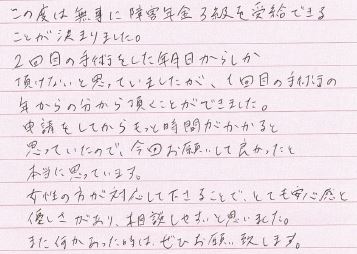 この度は無事に障害年金3級を受給できる
ことが決まりました。
2回目の手術をした年月日からしか
頂けないと思っていましたが、1回目の手術の
年からの分から頂くことができました。
申請をしてからもっと時間がかかると
思っていたので、今回お願いして良かったと
本当に思っています。
女性の方が対応して下さることで、とても安心感と
優しさがあり、相談しやすいと思いました。
また何かあった時は、ぜひお願い致します。